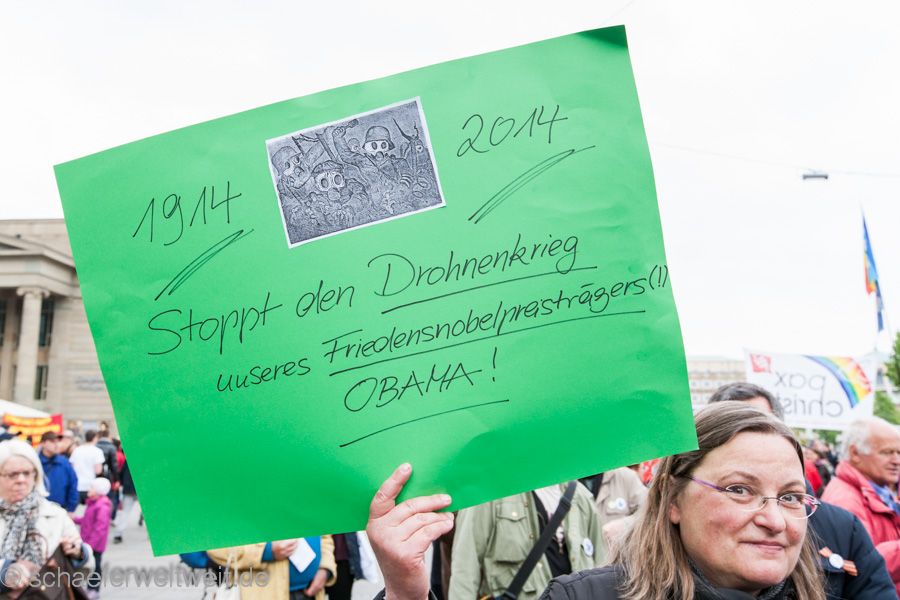 1914
2014
Stoppt den Drohnenkrieg
unseres Friedensnobelpreisträgers(!)
OBAMA!
pax
christi
© schaelerweltweit.de